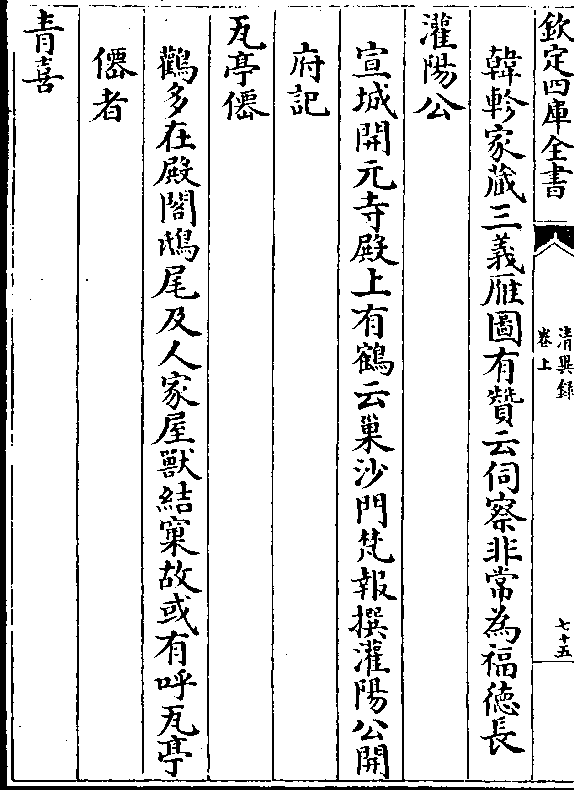 欽定四庫全書
清異録
卷上
七十五
韓軫家藏三義雁圖有贊云伺察非常為福徳長
灌陽公
宣城開元寺殿上有鶴云巢沙門梵報撰灌陽公開
府記
瓦亭僊
鸛多在殿閣鴟尾及人家屋獸結窠故或有呼瓦亭
僊者
青喜